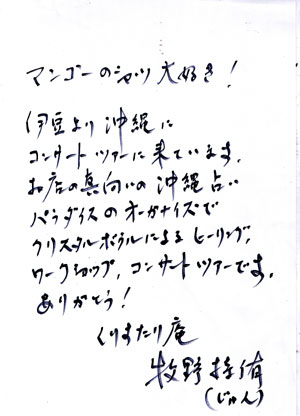 マンゴーのシャツ大好き!
伊豆より沖縄に
コンサートツアーに来ています。
お店の真向いの沖縄占い
パラダイスのオーガナイズで
クリスタルボウルによるヒーリング,
ワークショップ, コンサートツアーです。
ありがとう!
くりすたり庵
牧野持侑
(じゅん)